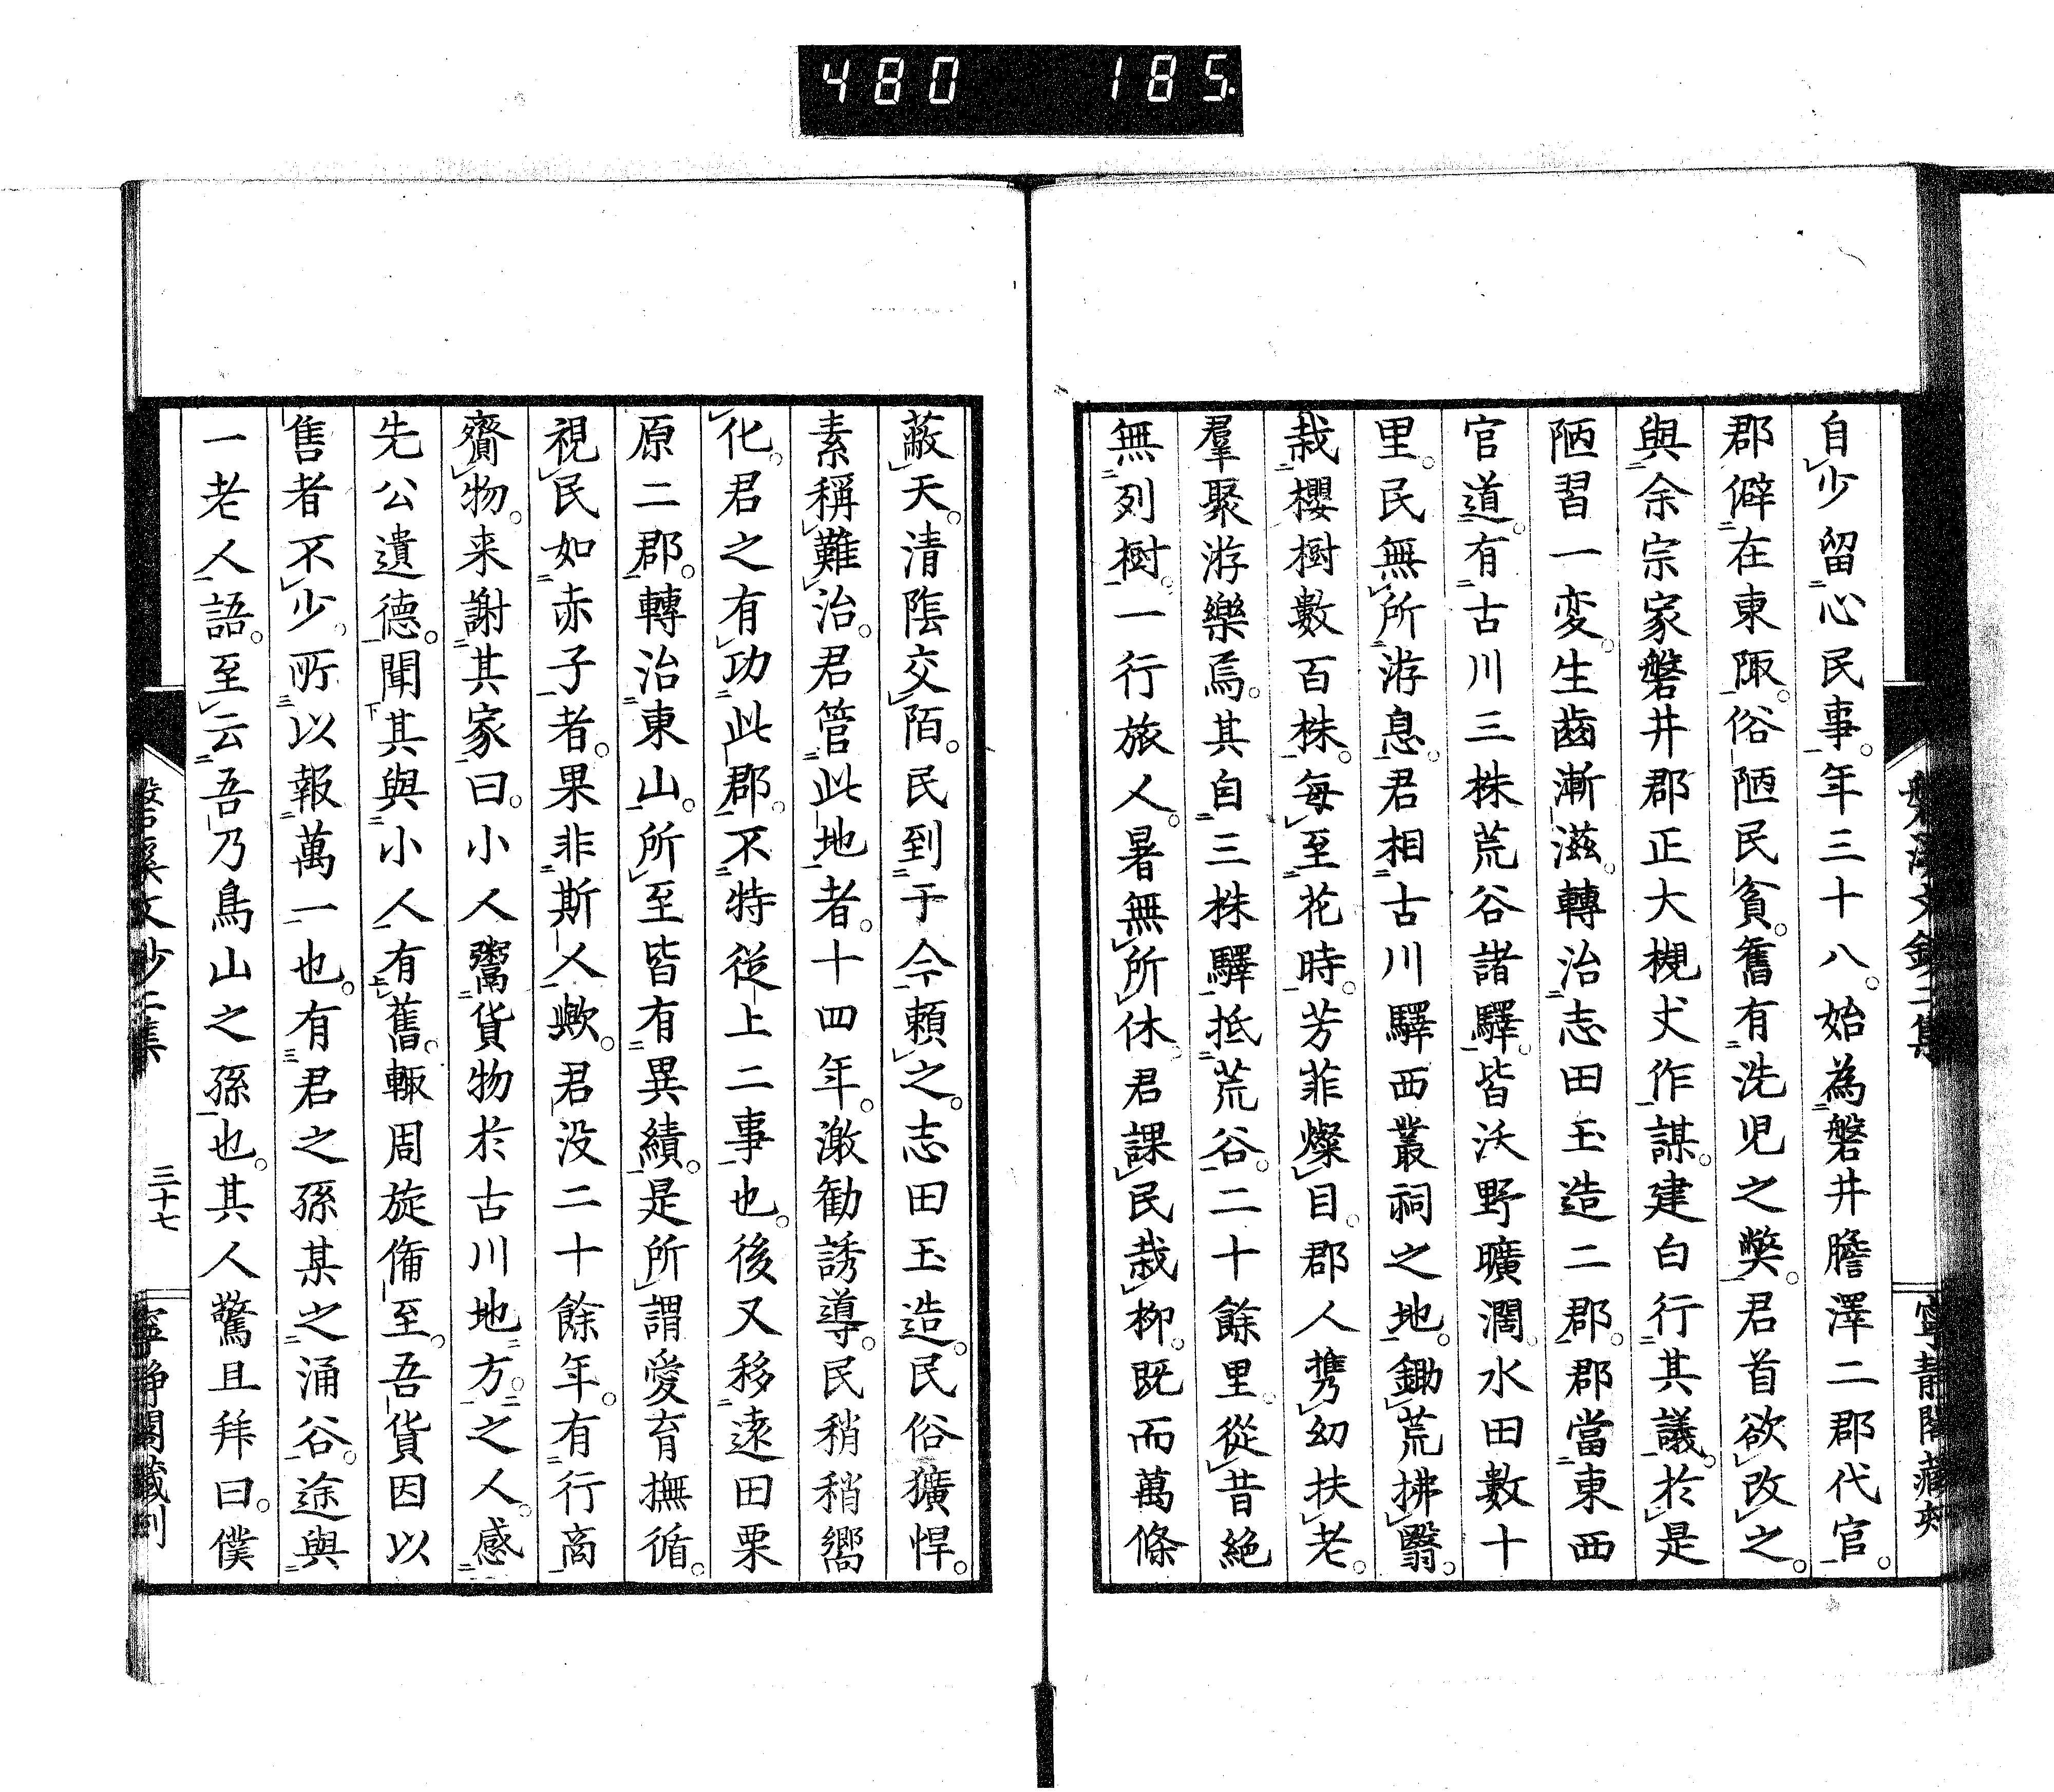 480 185.
自少留心民事。年三十八。始為磐井膽澤二郡代官。
郡僻在東陬。俗陋民貧。舊有洗児之獘。君首欲改之。
與余宗家磐井郡正大槻丈作謀。建白行其議。於是
陋習一変。生齒漸滋。轉治志田玉造二郡。郡當東西
官道。有古川三株荒谷諸驛。皆沃野曠濶。水田數十
里。民無所游息。君相古川驛西叢祠之地。鋤荒拂翳。
栽櫻樹數百株。每至花時。芳菲燦目。郡人携幼扶老。
羣聚游樂焉。其自三株驛抵荒谷。二十餘里。從昔絕
無列樹。一行旅人。暑無所休。君課民栽柳。既而萬條
蔽天。清陰交陌。民到于今頼之。志田玉造。民俗獷悍。
素稱難治。君管此地者。十四年。激勧誘導。民稍稍嚮
化。君之有功此郡。不特從上二事也。後又移遠田栗
原二郡。轉治東山。所至皆有異績。是所謂愛育撫循。
視民如赤子者。果非斯人歟。君没二十餘年。有行商
齎物。来謝其家曰。小人鬻貨物於古川地方。之人。感
先公遺德。聞其與小人有舊。輙周旋備至。吾貨因以
售者不少。所以報萬一也。有君之孫某之涌谷。途與
一老人語。至云吾乃鳥山之孫也。其人驚且拜曰。僕
磐溪文鈔二集 三十七 寧静閣藏刻